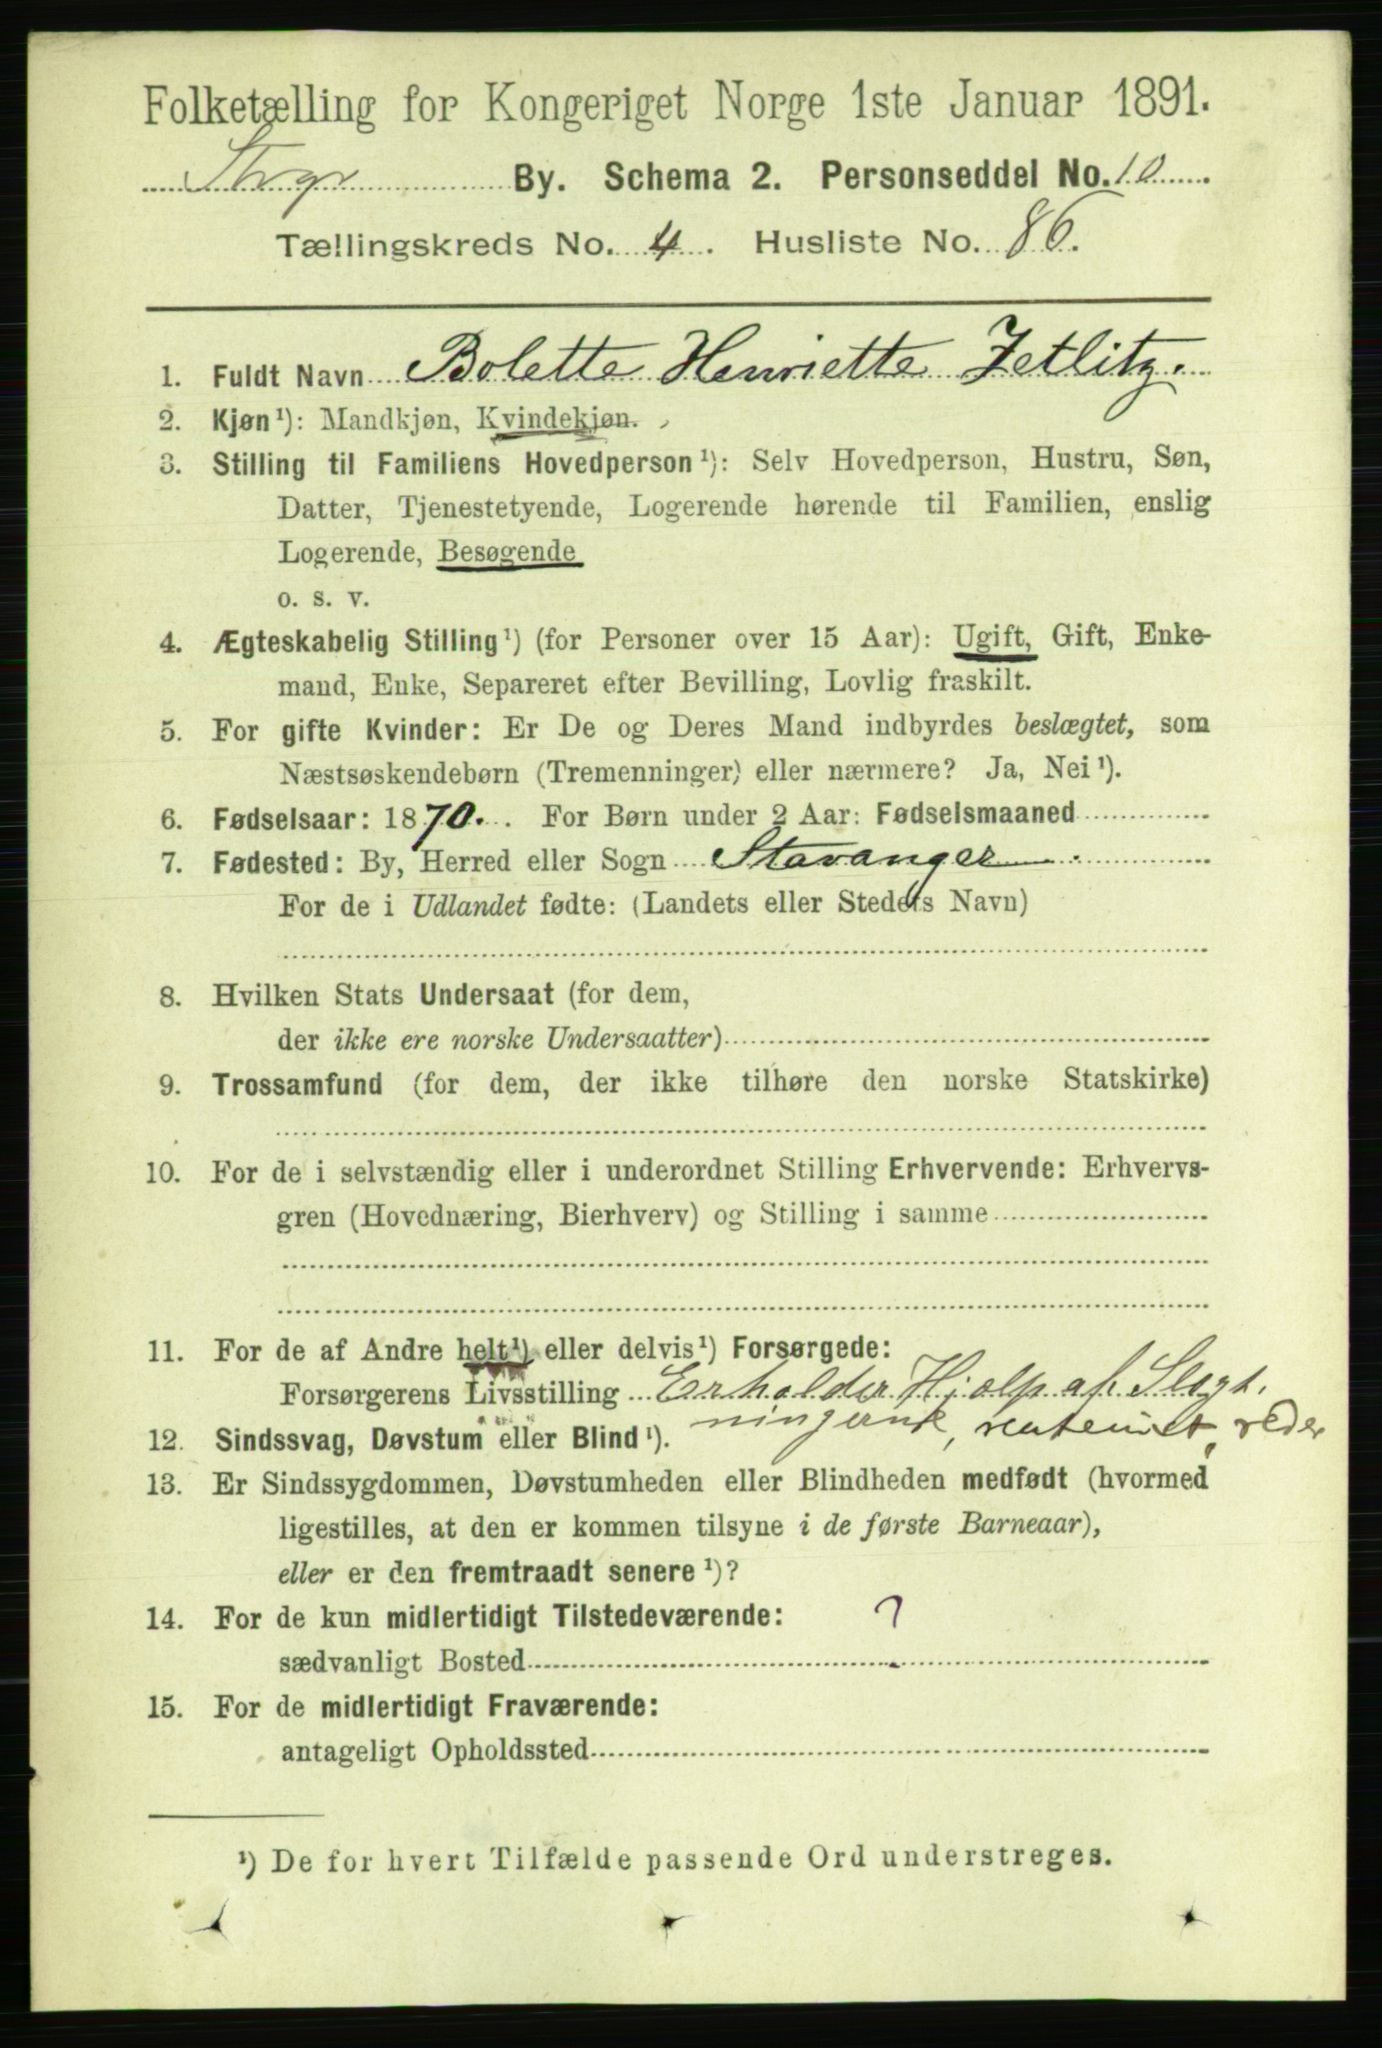 Folketælling for Kongeriget Norge 1ste Januar 1891.
Stvgr By. Schema 2. Personseddel No. 10
Tællingskreds No. 4. Husliste No. 86.
1. Fuldt Navn Bolette Henriette Zetlitz.
2. Kjøn¹): Mandkjøn, Kvindekjøn.
3. Stilling til Familiens Hovedperson¹): Selv Hovedperson, Hustru, Søn,
Datter, Tjenestetyende, Logerende hørende til Familien, enslig
Logerende, Besøgende
o. s. v.
4. Ægteskabelig Stilling¹) (for Personer over 15 Aar): Ugift, Gift, Enke-
mand, Enke, Separeret efter Bevilling, Lovlig fraskilt.
5. For gifte Kvinder: Er De og Deres Mand indbyrdes beslægtet, som
Næstsøskendebørn (Tremenninger) eller nærmere? Ja, Nei¹).
6. Fødselsaar: 1870. For Børn under 2 Aar: Fødselsmaaned
7. Fødested: By, Herred eller Sogn Stavanger
For de i Udlandet fødte: (Landets eller Stedets Navn)
8. Hvilken Stats Undersaat (for dem,
der ikke ere norske Undersaatter)
9. Trossamfund (for dem, der ikke tilhøre den norske Statskirke)
10. For de i selvstændig eller i underordnet Stilling Erhvervende: Erhvervs-
gren (Hovednæring, Bierhverv) og Stilling i samme
11. For de af Andre helt¹) eller delvis¹) Forsørgede:
Forsørgerens Livsstilling Erholder Hjælp af Slegt.
ningerne, reder
12. Sindssvag, Døvstum eller Blind¹).
13. Er Sindssygdommen, Døvstumheden eller Blindheden medfødt (hvormed
ligestilles, at den er kommen tilsyne i de første Barneaar),
eller er den fremtraadt senere¹)?
14. For de kun midlertidigt Tilstedeværende: ?
sædvanligt Bosted
15. For de midlertidigt Fraværende:
antageligt Opholdssted
¹) De for hvert Tilfælde passende Ord understreges.